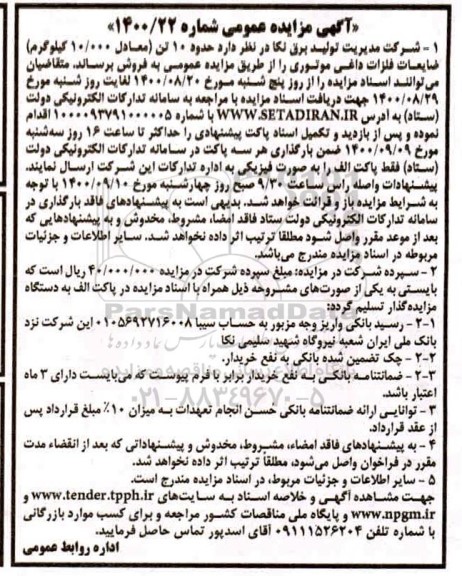 «آگهی مزایده عمومی شماره ۱۴۰۰/۲۲»
۱- شرکت مدیریت تولید برق نکا در نظر دارد حدود ۱۰ تن (معادل ۱۰/۰۰۰ کیلوگرم)
ضایعات فلزات داغی موتوری را از طریق مزایده عمومی به فروش برساند. متقاضیان
می‌توانند اسناد مزایده را از روز پنج شنبه مورخ ۱۴۰۰/۰۸/۲۰ لغایت روز شنبه مورخ
۱۴۰۰/۰۸/۲۹ جهت دریافت اسناد مزایده با مراجعه به سامانه تدارکات الکترونیکی دولت
(ستاد) به آدرس WWW.SETADIRAN.IR با شماره ۱۰۰۰۰۹۳۷۹۱۰۰۰۰۰۵ اقدام
نموده و پس از بازدید و تکمیل اسناد پاکت پیشنهادی را حداکثر تا ساعت ۱۶ روز سه‌شنبه
مورخ ۱۴۰۰/۰۹/۰۹ ضمن بارگذاری هر سه پاکت در سامانه تدارکات الکترونیکی دولت
(ستاد) فقط پاکت الف را بصورت فیزیکی به اداره تدارکات این شرکت ارسال نمایند.
پیشنهادات واصله راس ساعت ۹/۳۰ صبح روز چهارشنبه مورخ ۱۴۰۰/۰۹/۱۰ با توجه
به شرایط مزایده باز و قرائت خواهد شد. بدیهی است به پیشنهادهای فاقد بارگذاری در
سامانه تدارکات الکترونیکی دولت ستاد فاقد امضا، مشروط، مخدوش و به پیشنهادهایی که
بعد از موعد مقرر واصل شود مطلقا ترتیب اثر داده نخواهد شد. سایر اطلاعات و جزئیات
مربوطه در اسناد مزایده مندرج می‌باشد.
۲- سپرده شرکت در مزایده: مبلغ سپرده شرکت در مزایده ۴۰/۰۰۰/۰۰۰ ریال است که
بایستی به یکی از صورت‌های مشروحه ذیل همراه با اسناد مزایده در پاکت الف به دستگاه
مزایده‌گذار تسلیم گردد
۲-۱- رسید بانکی واریز وجه مزبور به حساب سیبا ۰۱۰۵۶۹۲۷۱۶۰۰۸ این شرکت نزد
بانک ملی ایران شعبه نیروگاه شهید سلیمی نکا
۲-۲- چک تضمین شده بانکی به نفع خریدار.
۲-۳- ضمانتنامه بانکی به نفع خریدار برابر با فرم پیوست که می‌بایست دارای ۳ ماه
اعتبار باشد.
۳- توانایی ارائه ضمانتنامه بانکی حسن انجام تعهدات به میزان ۱۰٪ مبلغ قرارداد پس
از عقد قرارداد.
۴- به پیشنهادهای فاقد امضاء، مشروط، مخدوش و پیشنهاداتی که بعد از انقضاء مدت
مقرر در فراخوان واصل می‌شود، مطلقاً ترتیب اثر داده نخواهد شد.
۵- سایر اطلاعات و جزئیات مربوط، در اسناد مزایده مندرج است.
جهت مشاهده آگهی و خلاصه اسناد به سایت‌های www.tender.tpph.ir و
www.npgm.ir و پایگاه ملی مناقصات کشور مراجعه و برای کسب موارد بازرگانی
با شماره تلفن ۰۹۱۱۱۵۲۶۲۰۴ آقای اسدپور تماس حاصل فرمایید.
اداره روابط عمومی
ParsNamadData
۰۲۱-۸۸۳۴۹۶۷۰-۵